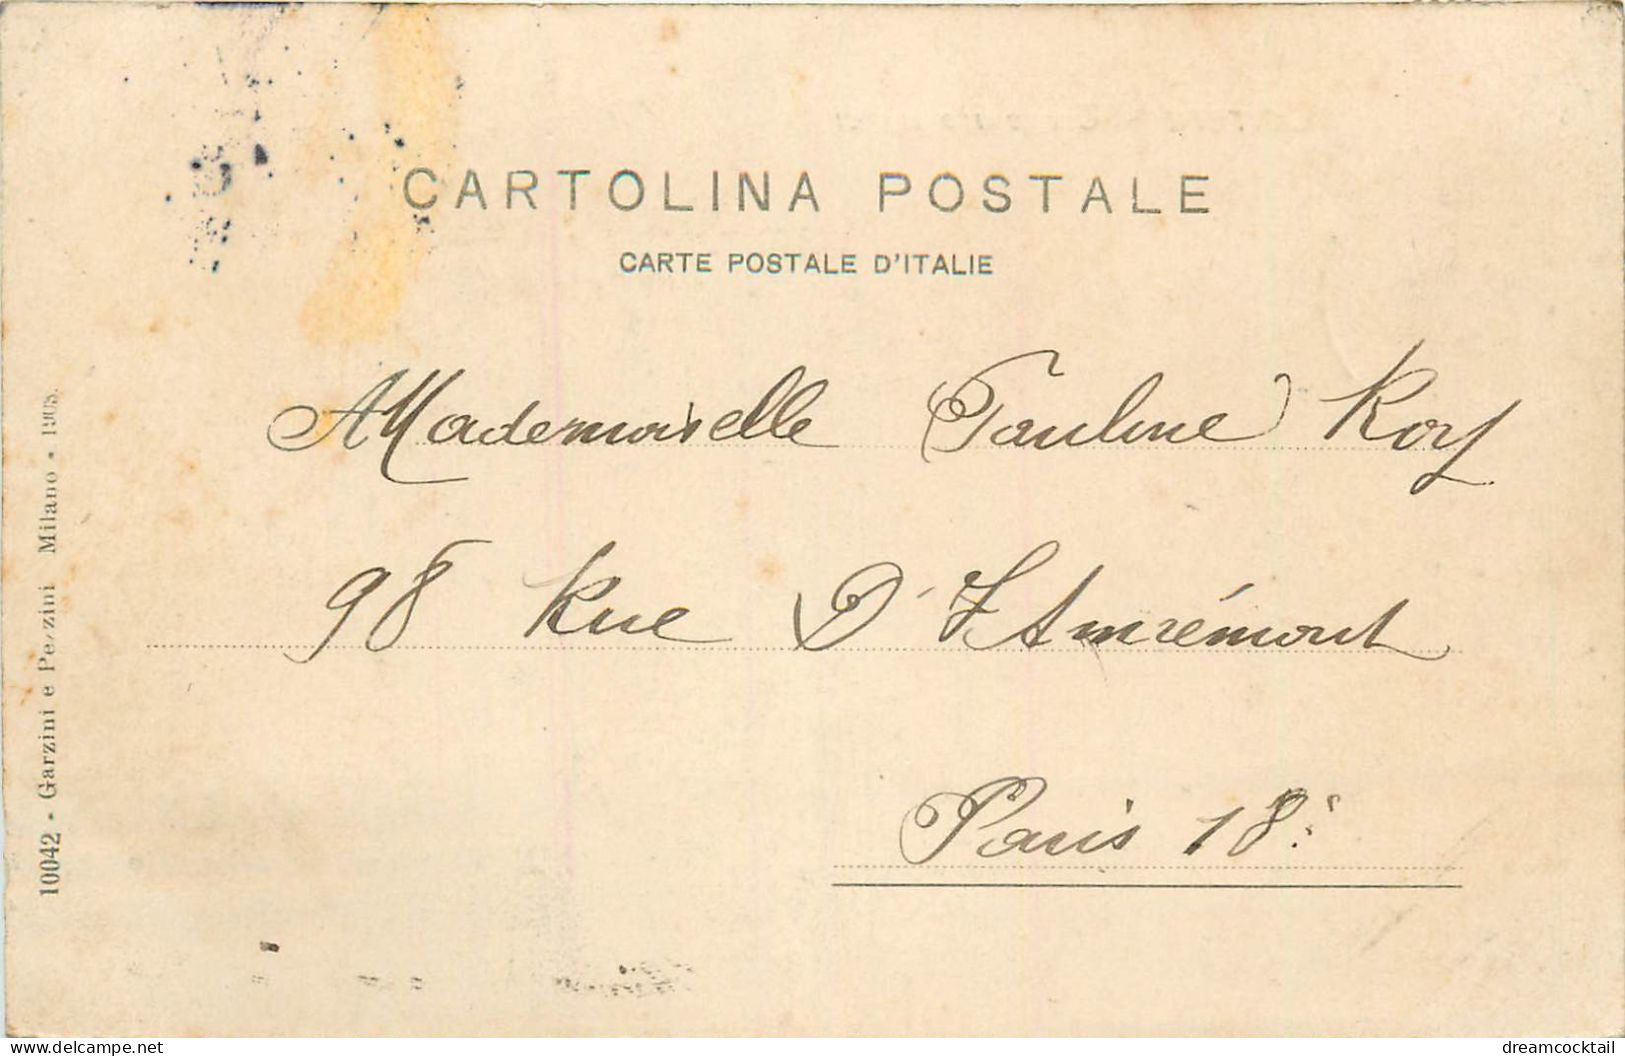 CARTOLINA POSTALE
CARTE POSTALE D'ITALIE
Mademoiselle Pauline Roy
98 Rue D'Amrémont
Paris 18e
10042 - Garzini e Pezzini Milano - 1905.
www.delcampe.net
dreamcocktail